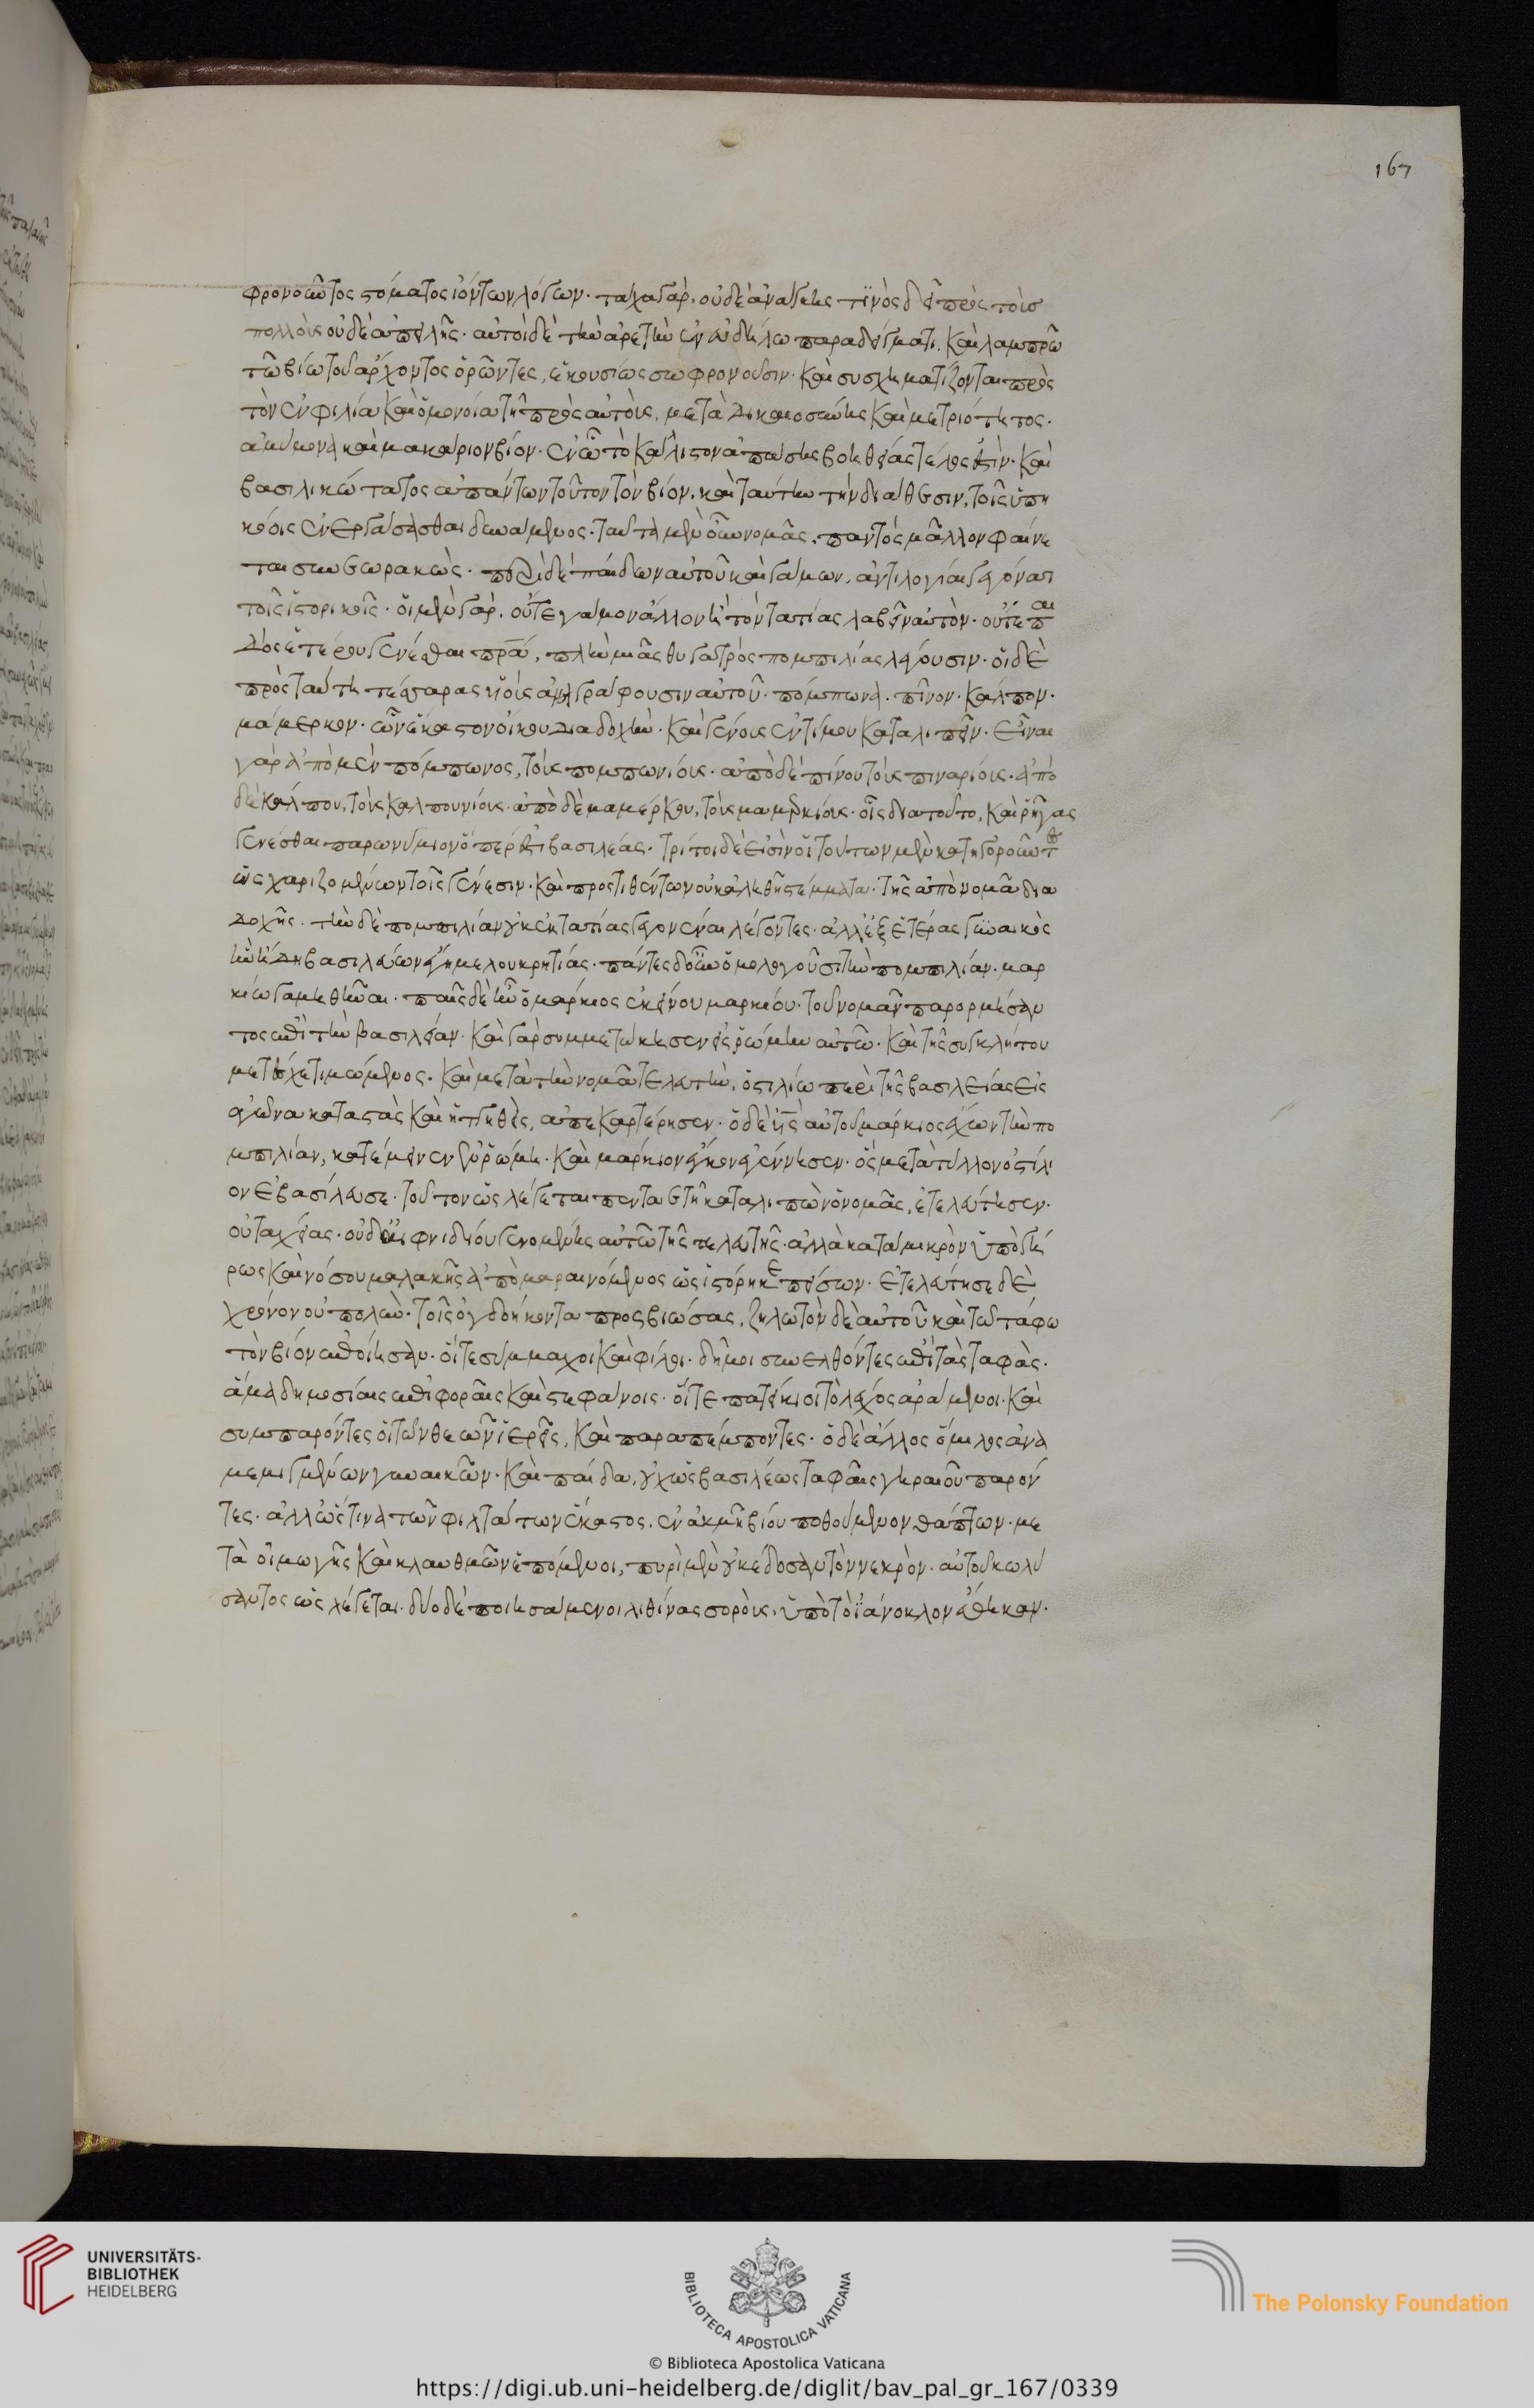 167
φρονοῦντος στόματος ἰόντων λόγων· τάχα γὰρ, οὐδὲ ἀνάγκης τινὸς δεῖ πρὸς τοὺσ
πολλοὺς οὐδὲ ἀπειλῆς· αὐτοὶ δὲ τὴν ἀρετὴν ἐν εὐδήλω παραδείγματι, καὶ λαμπρῶ
τῶ βίω τοῦ ἄρχοντος ὁρῶντες, ἑκουσίως σωφρονοῦσιν· καὶ συσχηματίζονται πρὸς
τὸν ἐν φιλία καὶ ὁμονοία τῆ πρὸς αὐτοὺς, μετὰ δικαιοσύνης καὶ μετριότητος·
ἀκύμονα καὶ μακάριον βίον· ἐν ὧ τὸ κάλλιστον ἁπάσης βοηθείας τέλος ἐστὶν· καὶ
βασιλικώτατος ἁπάντων τοῦτον τὸν βίον, καὶ ταύτην τὴν διάθεσιν, τοῖς ὑπη
κόοις ἐνεργάσασθαι δυνάμενος· ταῦτα μὲν οὖν νομᾶς, παντὸς μᾶλλον φαίνε
ται συνεωρακὼς· περὶ δὲ παίδων αὐτοῦ καὶ γάμων, ἀντιλογίαι γεγόνασι
τοῖς ἱστορικοῖς· οἱ μὲν γὰρ, οὔτε γάμον ἄλλον ἢ τὸν τατίας λαβεῖν αὐτὸν· οὔτε παι
δὸς ἑτέρου γενέσθαι πρα, πλὴν μιᾶς θυγατρὸς πομπιλίας λέγουσιν· οἱ δὲ
πρὸς ταύτη τέσσαρας υἱοὺς ἀναγράφουσιν αὐτοῦ· πόμπωνα· πῖνον· κάλπον·
μάμερκον· ὧν ἕκαστον οἴκου διαδοχὴν· καὶ γένους ἐντίμου καταλιπεῖν· εἶναι
γὰρ ἀπὸ μὲν πόμπωνος, τοὺς πομπωνίους· ἀπὸ δὲ πίνου τοὺς πιναρίους· ἀπὸ
δὲ κάλπου, τοὺς καλπουνίους· ἀπὸ δὲ μαμέρκου, τοὺς μαμερκίους· οἷς διατοῦτο, καὶ ῥῆγας
γενέσθαι παρωνύμιον ὅπερ ἐστὶ βασιλέας· τρίτοι δὲ εἰσὶν οἱ τούτων μὲν κατηγοροῦντ
ὡς χαριζομένων τοῖς γένεσιν· καὶ προστιθέντων οὐκ ἀληθῆ στέμματα· τῆς ἀπὸ νομᾶ δια
δοχῆς· τὴν δὲ πομπιλίαν οὐκ ἐκ τατίας γεγονέναι λέγοντες· ἀλλ' ἐξ ἑτέρας γυναικὸς
ἣν ἤδη βασιλεύων ἔγημε λουκρητίας· πάντες δ' οὖν ὁμολογοῦσι τὴν πομπιλίαν· μαρ
κίω γαμηθῆναι· παῖς δὲ ἦν ὁ μάρκιος ἐκείνου μαρκίου· τοῦ νομᾶν παρορμήσαν
τος ἐπὶ τὴν βασιλείαν· καὶ γὰρ συμμετώκησεν εἰς ῥώμην αὐτῶ· καὶ τῆς συγκλήτου
μετέσχε τιμώμενος· καὶ μετὰ τὴν νομᾶ τελευτὴν, ὁστιλίω περὶ τῆς βασιλείας εἰς
ἀγῶνα καταστὰς καὶ ἡττηθεὶς, ἀπεκαρτέρησεν· ὁ δὲ υἱὸς αὐτοῦ μάρκιος ἔχων τὴν πο
μπιλίαν, κατέμεινεν ἐν ῥώμη· καὶ μάρκιον ἄγκον ἐγέννησεν· ὃς μετὰ τύλλον ὁστίλι
ον ἐβασίλευσε· τοῦτον ὡς λέγεται πενταετῆ καταλιπὼν ὁ νομᾶς, ἐτελεύτησεν·
οὐ ταχείας· οὐδ' αἰφνιδίου γενομένης αὐτῶ τῆς τελευτῆς· ἀλλὰ κατὰ μικρὸν ὑπὸ γή
ρως καὶ νόσου μαλακῆς ἀπομαραινόμενος ὡς ἱστόρηκε πείσων· ἐτελεύτησε δὲ
χρόνον οὐ πολὺν· τοῖς ὀγδοήκοντα προσβιώσας, ζηλωτὸν δὲ αὐτοῦ καὶ τῶ τάφω
τὸν βίον ἐποίησαν· οἵ τε σύμμαχοι καὶ φίλοι· δῆμοι συνελθόντες ἐπὶ τὰς ταφὰς·
ἅμα δημοσίαις ἐπιφοραῖς καὶ στεφάνοις· οἵ τε πατρίκιοι τὸ λέχος ἀράμενοι· καὶ
συμπαρόντες οἱ τῶν θεῶν ἱερεῖς, καὶ παραπέμποντες· ὁ δὲ ἄλλος ὅμιλος ἀνα
μεμιγμένων γυναικῶν· καὶ παίδων, οὐχ ὡς βασιλέως ταφαῖς γηραιοῦ παρόν
τες· ἀλλ' ὥς τινα τῶν φιλτάτων ἕκαστος, ἐν ἀκμῆ βίου ποθούμενον θάπτων· με
τὰ οἰμωγῆς καὶ κλαυθμῶν ἑπόμενοι, πυρὶ μὲν οὐκ ἔδοσαν τὸν νεκρὸν· αὐτοῦ κωλύ
σαντος ὡς λέγεται· δύο δὲ ποιησάμενοι λιθίνας σοροὺς, ὑπὸ τὸ ἰάνοκλον ἔθηκαν·
UNIVERSITÄTS-
BIBLIOTHEK
HEIDELBERG
BIBLIOTECA APOSTOLICA VATICANA
The Polonsky Foundation
© Biblioteca Apostolica Vaticana
https://digi.ub.uni-heidelberg.de/diglit/bav_pal_gr_167/0339